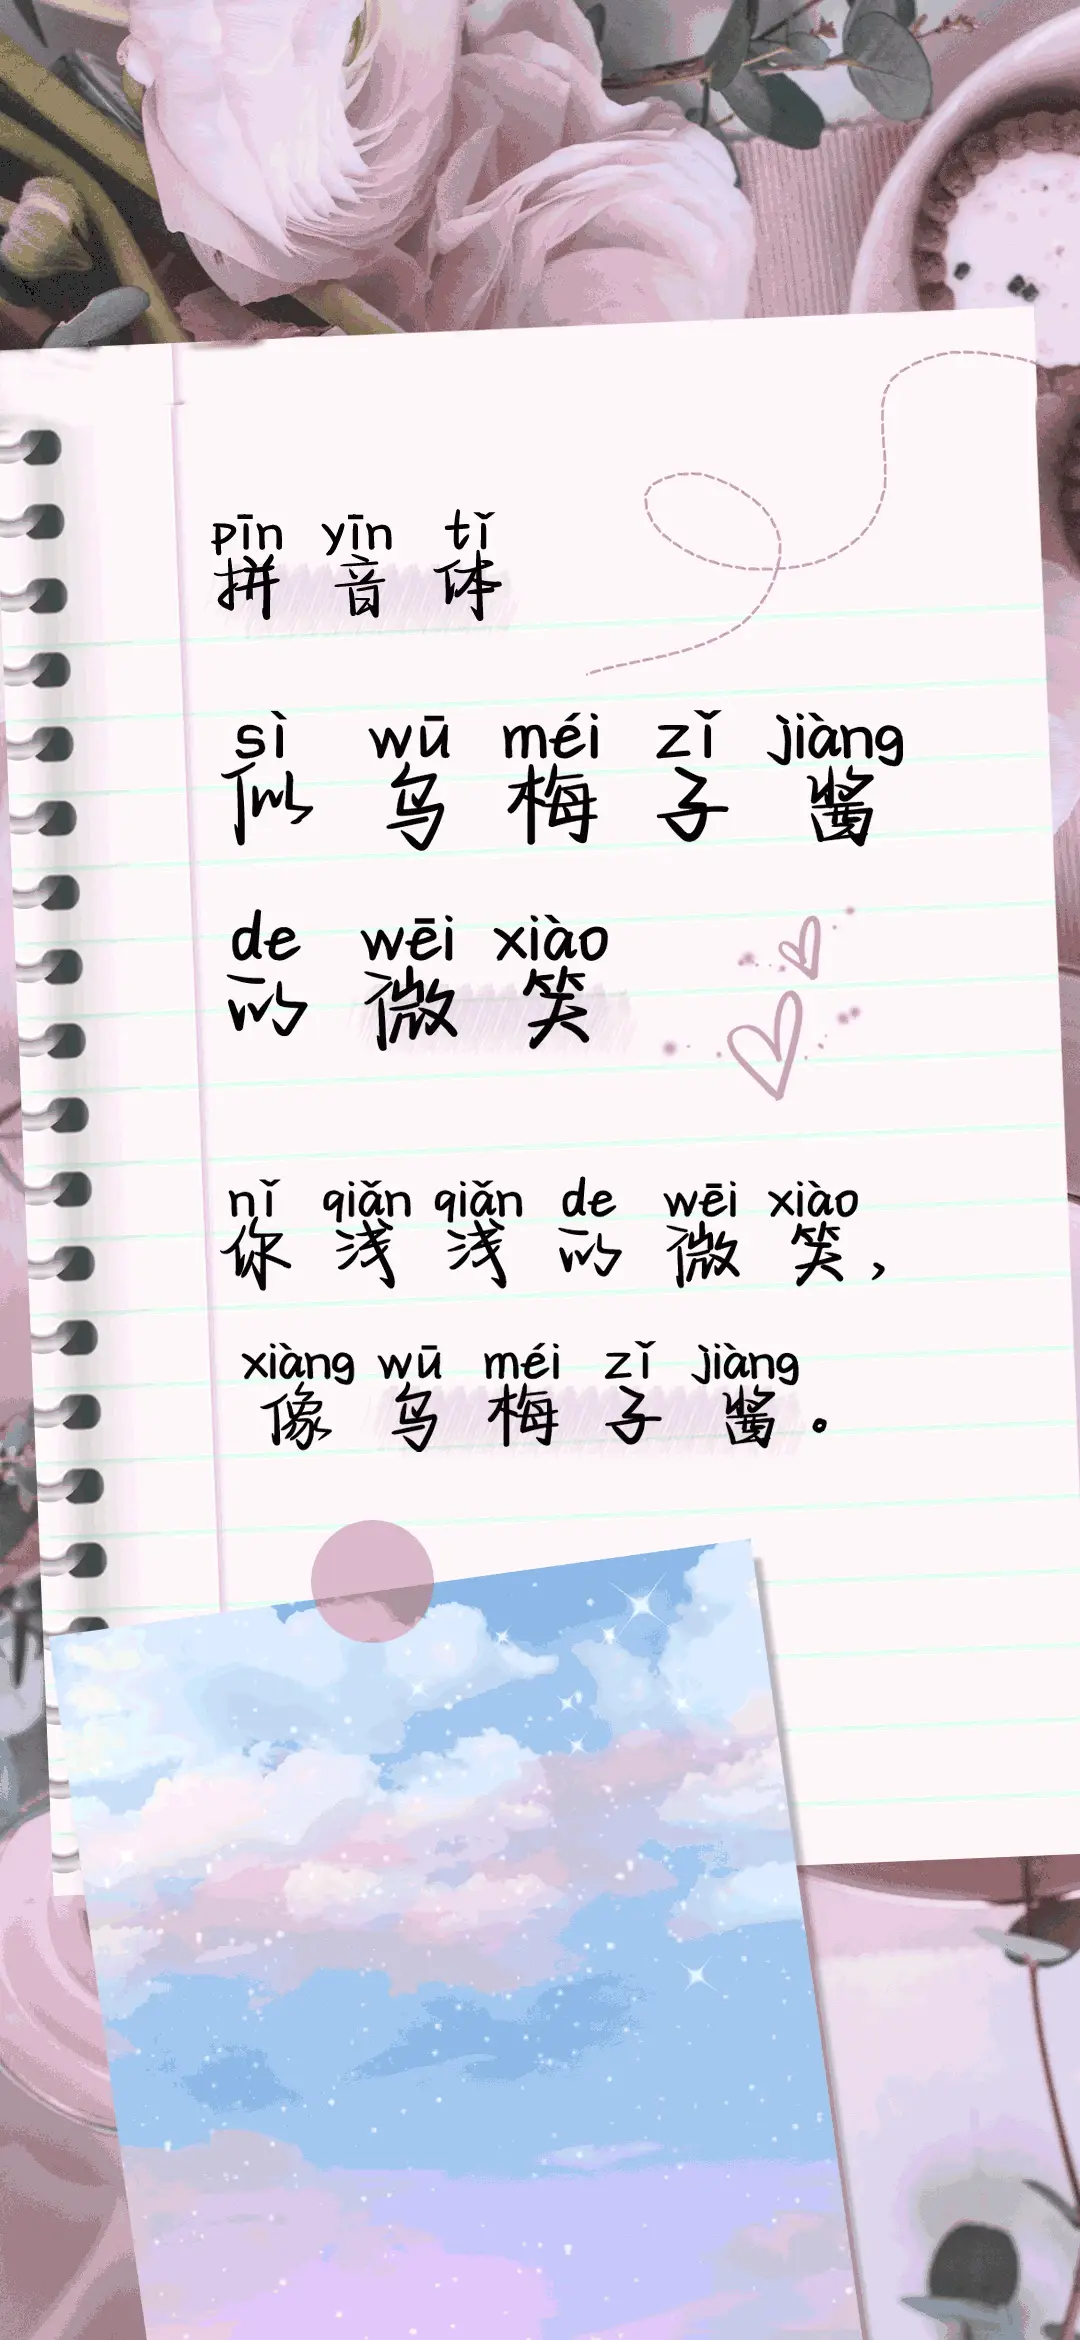 pīn yīn tǐ
拼音体
sì wū méi zǐ jiàng
似乌梅子酱
de wēi xiào
的微笑
nǐ qiǎn qiǎn de wēi xiào
你浅浅的微笑，
xiàng wū méi zǐ jiàng
像乌梅子酱。